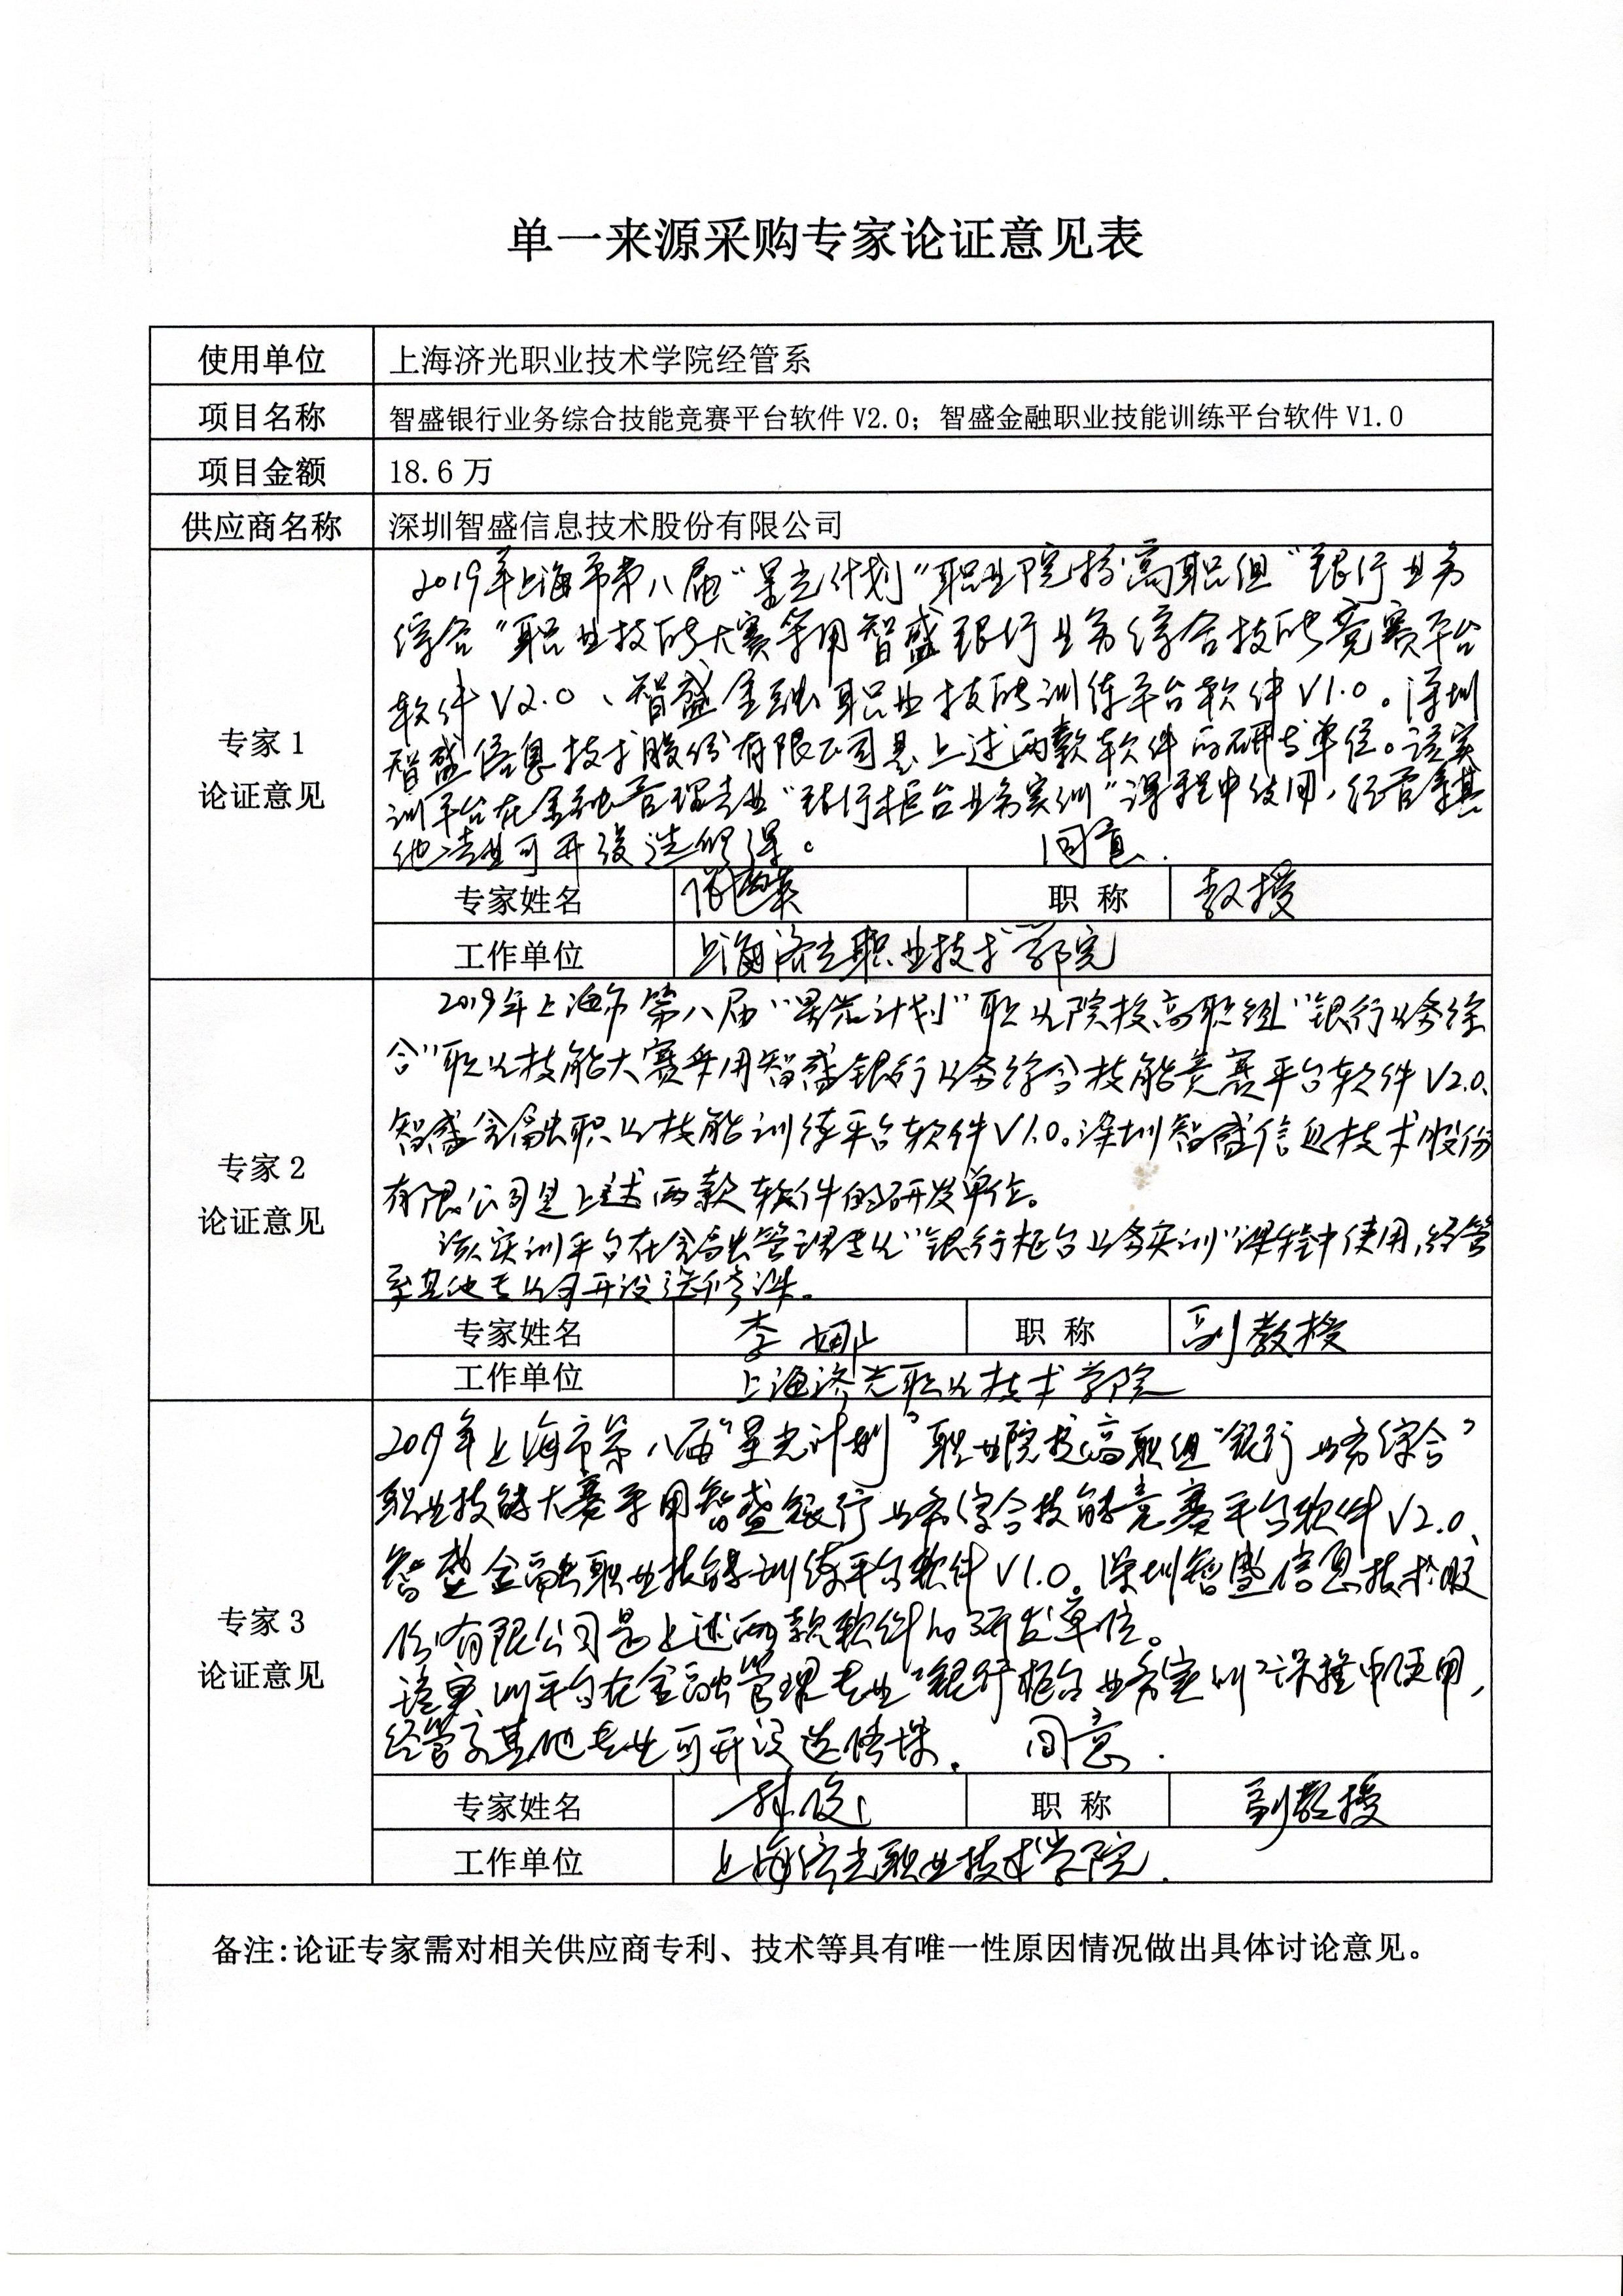 单一来源采购专家论证意见表
使用单位 上海济光职业技术学院经管系
项目名称 智盛银行业务综合技能竞赛平台软件 V2.0；智盛金融职业技能训练平台软件 V1.0
项目金额 18.6 万
供应商名称 深圳智盛信息技术股份有限公司
专家 1
论证意见
2019年上海市第八届“星光计划”职业院校高职组“银行业务
综合”职业技能大赛采用智盛银行业务综合技能竞赛平台
软件 V2.0、智盛金融职业技能训练平台软件 V1.0。深圳
智盛信息技术股份有限公司是上述两款软件的研发单位。该实
训平台在金融管理专业“银行柜台业务实训”课程中使用，经管系其
他专业可开设选修课。 同意.
专家姓名 职 称 教授
工作单位 上海济光职业技术学院
专家 2
论证意见
2019年上海市第八届“星光计划”职业院校高职组“银行业务综
合”职业技能大赛采用智盛银行业务综合技能竞赛平台软件 V2.0、
智盛金融职业技能训练平台软件 V1.0。深圳智盛信息技术股份
有限公司是上述两款软件的研发单位。
该实训平台在金融管理专业“银行柜台业务实训”课程中使用，经管
系其他专业可开设选修课。
专家姓名 李娜 职 称 副教授
工作单位 上海济光职业技术学院
专家 3
论证意见
2019年上海市第八届“星光计划”职业院校高职组“银行业务综合”
职业技能大赛采用智盛银行业务综合技能竞赛平台软件 V2.0、
智盛金融职业技能训练平台软件 V1.0。深圳智盛信息技术股
份有限公司是上述两款软件的研发单位。
该实训平台在金融管理专业“银行柜台业务实训”课程中使用，
经管系其他专业可开设选修课。 同意.
专家姓名 职 称 副教授
工作单位 上海济光职业技术学院.
备注：论证专家需对相关供应商专利、技术等具有唯一性原因情况做出具体讨论意见。